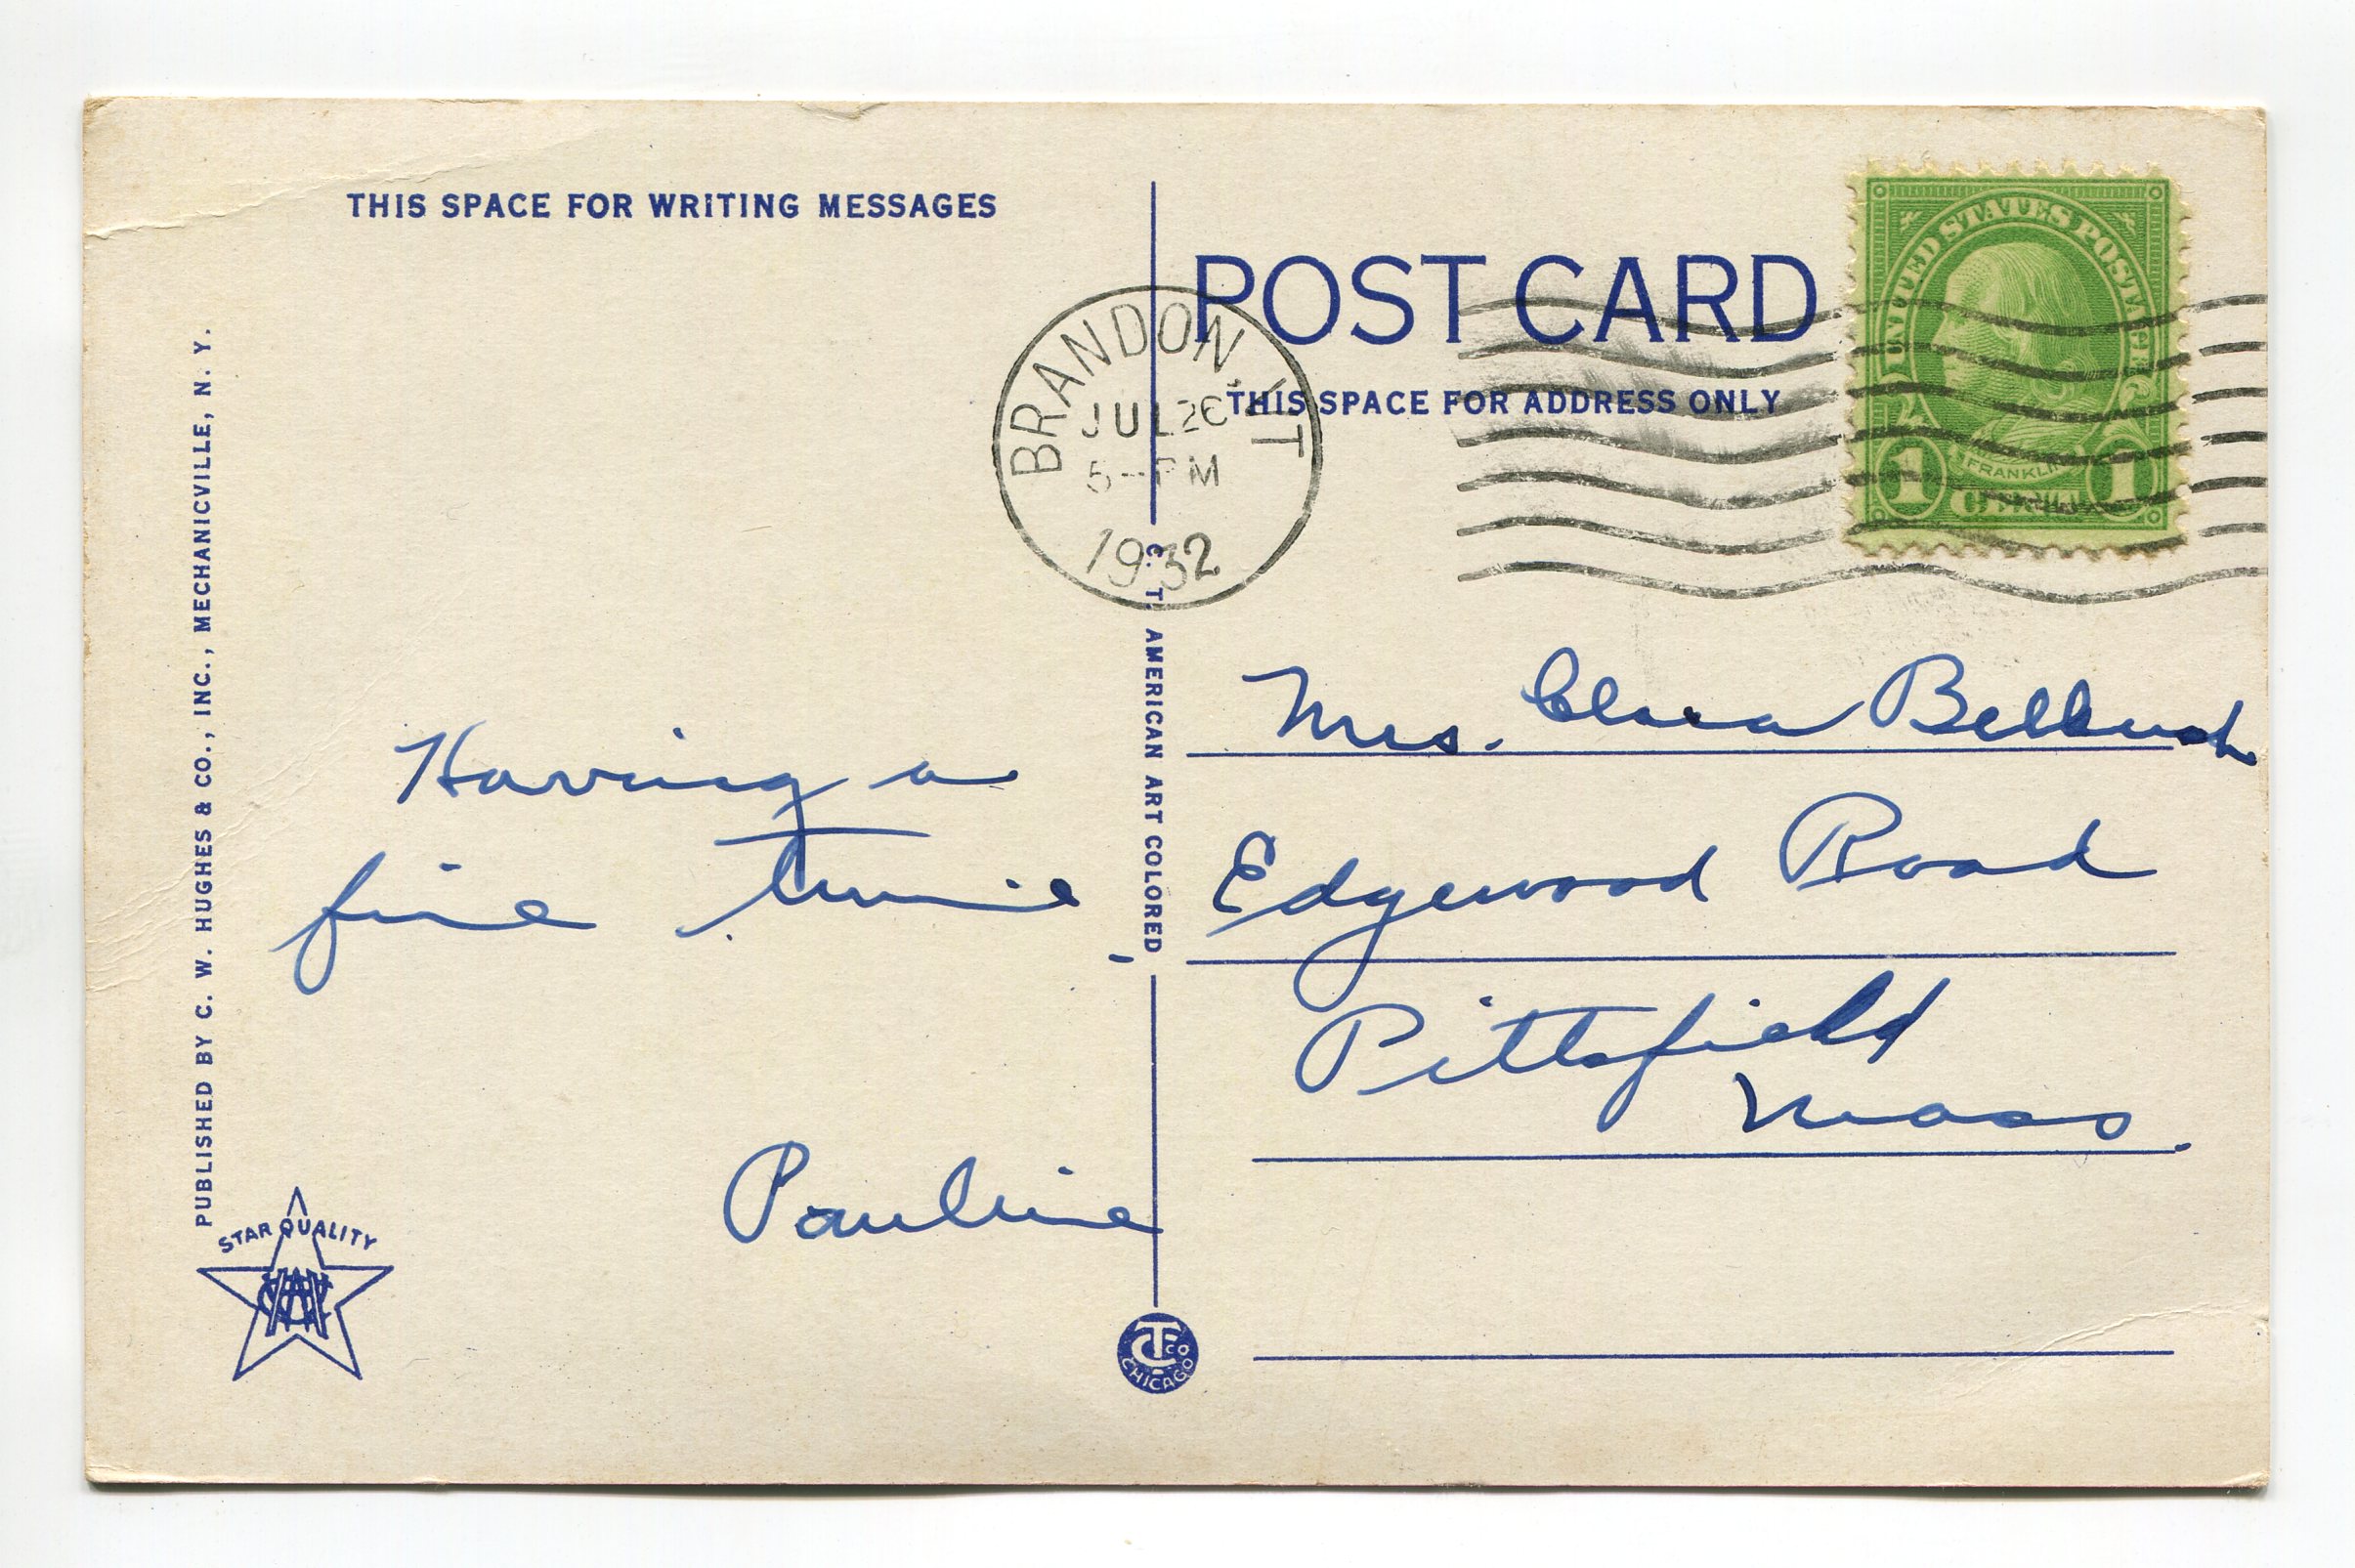 THIS SPACE FOR WRITING MESSAGES
PUBLISHED BY C. W. HUGHES & CO., INC., MECHANICVILLE, N. Y.
Having a
fine time
Pauline
STAR QUALITY
C. T. AMERICAN ART COLORED
CT CO
CHICAGO
POST CARD
THIS SPACE FOR ADDRESS ONLY
BRANDON, VT
JUL 26
5-PM
1932
UNITED STATES POSTAGE
FRANKLIN
1 CENT 1
Mrs. Clara
Edgewood Road
Pittsfield
Mass.